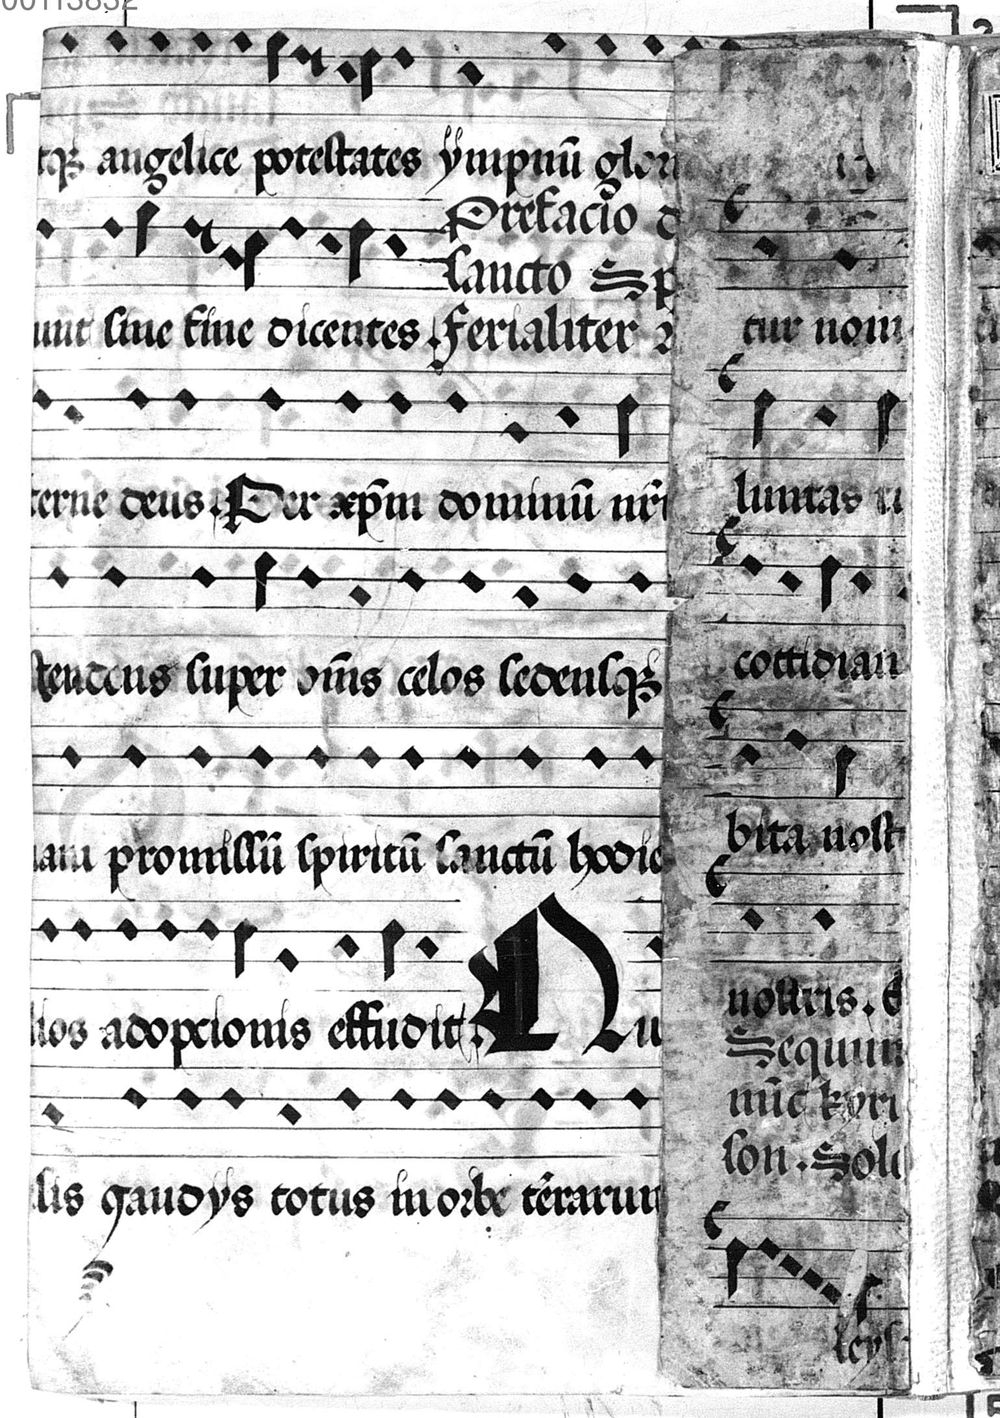 00113832
tqꝫ angelice potestates ympnū glori
Prefacio d
sancto Sp
unt sine fine dicentes. Ferialiter
terne deus. Per xp̄m dominū nr̄
stendens super om̄s celos sedensqꝫ
nam promissū spiritū sanctū hodie
lios adopcionis effudit. Qu
sis gaudijs totus in orbe terrarum
tur nom
luntas
cottidian
bita nost
nostris. S
Sequun
mūc kyri
son. Sole
leys